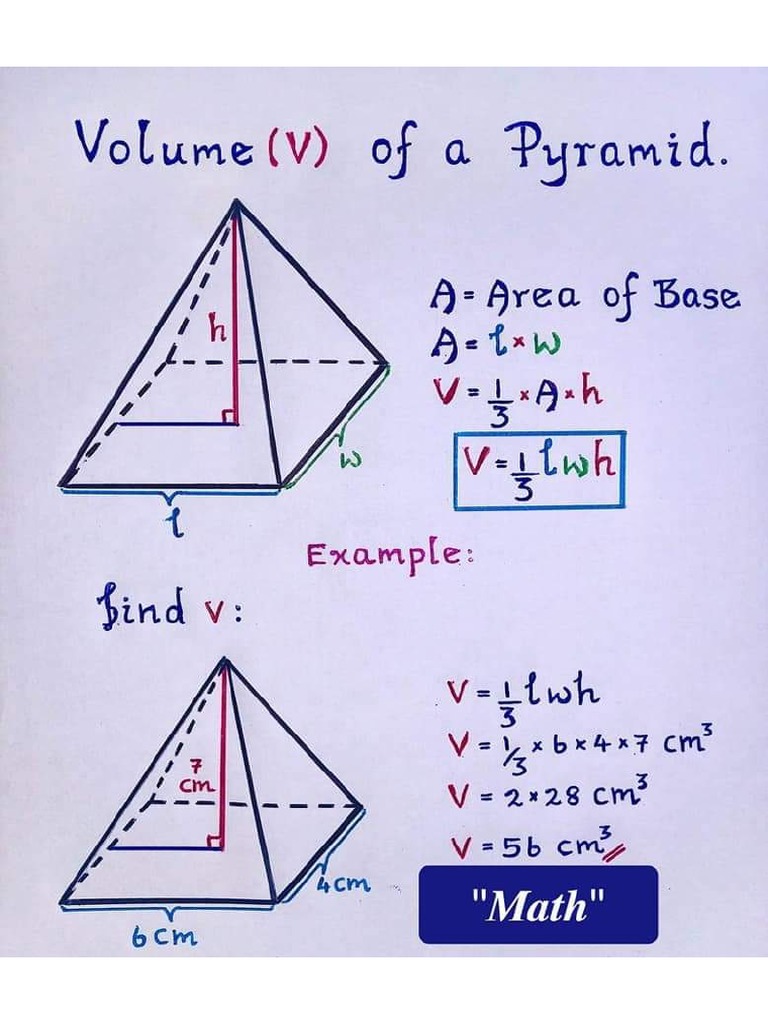 Volume (V) of a Pyramid.
h
w
l
A = Area of Base
A = l × w
V = 1/3 × A × h
V = 1/3 lwh
Example:
find v:
7
cm
4cm
6 cm
V = 1/3 lwh
V = 1/3 × 6 × 4 × 7 cm³
V = 2 × 28 cm³
V = 56 cm³
"Math"